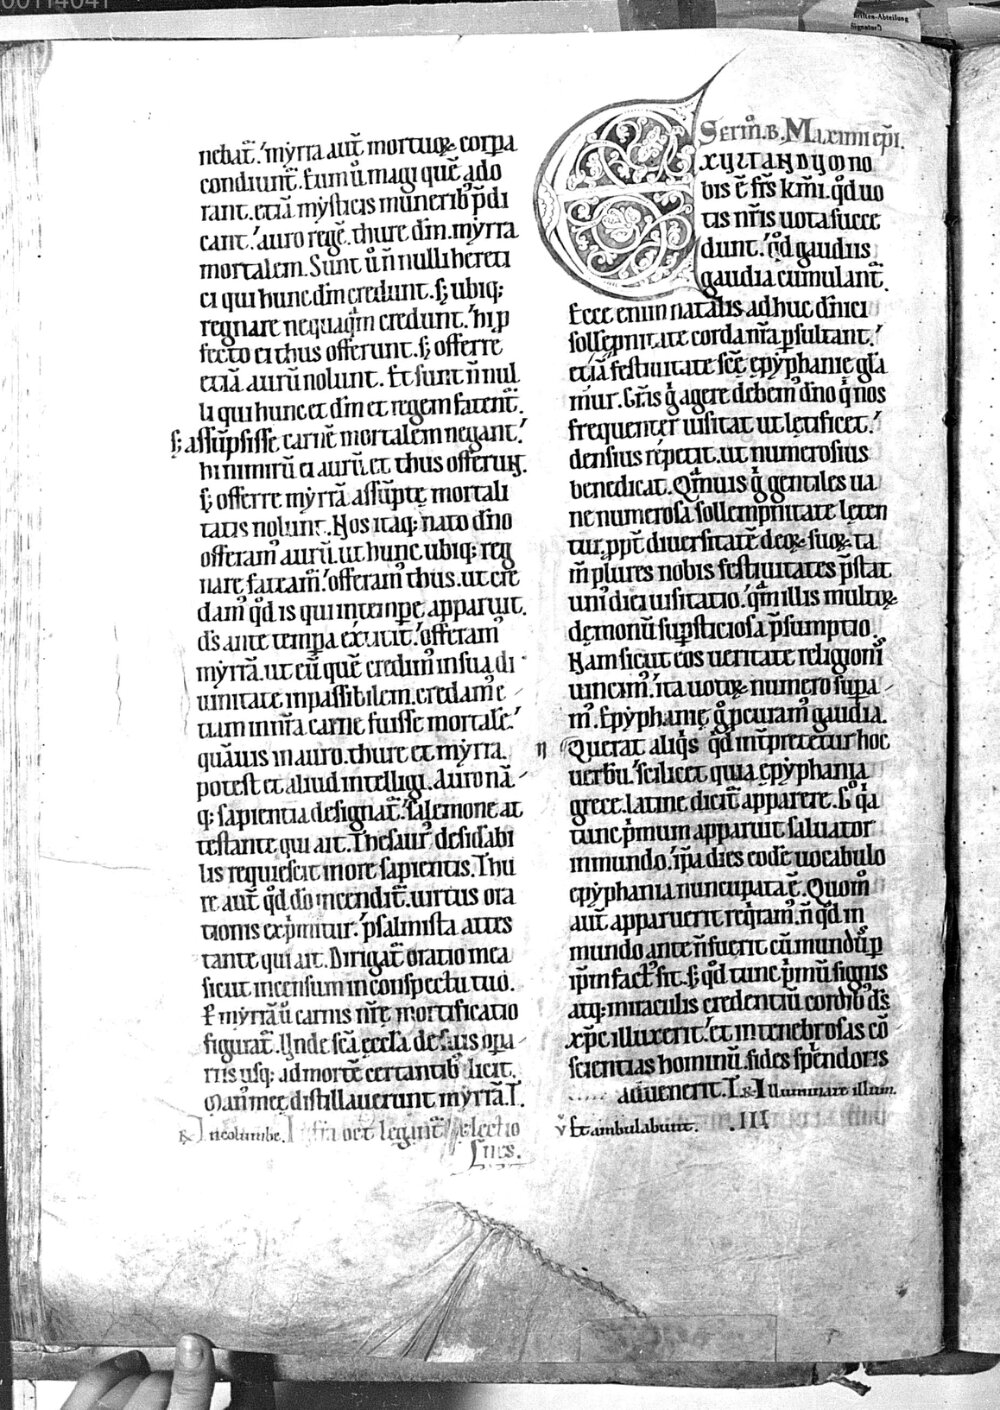 00114041
nebat̄. myrra aut̄ mortuoꝝ corpa
condiunt̄. Eum ů magi quē ado
rant. etiā mysticis munerib; p̄di
cant. auro regē. thure dm̄. myrra
mortalem. Sunt ů n̄ nulli hereti
ci qui hunc dm̄ credunt. s; ubiq;
regnare nequaq̄m credunt. hi p
fecto ei thus offerunt. s; offerre
etiā aurū nolunt. Et sunt n̄ nul
li qui hunc et dm̄ et regem fatent̄.
s; assūpsisse carnē mortalem negant.
hi nimirū ei aurū et thus offerunt.
s; offerre myrrā assūptę mortali
tatis nolunt. Nos itaq; nato dn̄o
offeram᷒ aurū. ut hunc ubiq; reg
nare fateam᷒. offeram᷒ thus. ut cre
dam᷒ qd̄ is qui in tempe apparuit.
ds̄ ante tempa extitit. offeram᷒
myrrā. ut eū quē credim᷒ in sua di
uinitate inpassibilem. credam᷒ e
tiam in nr̄a carne fuisse mortalē.
quāuis in auro. thure et myrra.
potest et aliud intelligi. Auro nā
q; sapientia designat̄. salemone at
testante qui ait. Thesaur᷒ desid̄abi
lis requiescit in ore sapientis. Thu
re aut̄ qd̄ dō incendit̄. uirtus ora
tionis exp̄mitur. psalmista attes
tante qui ait. Dirigat̄ oratio mea
sicut incensum in conspectu tuo.
P myrrā ů carnis nr̄ę mortificatio
figurat̄. Unde scā eccl̄a de suis opa
riis usq; ad mortē certantib; dicit.
Man᷒ meę distillauerunt myrrā. I.
Sermō. B. Maximi epī.
EXULTANDUM no
bis ē frs̄ km̄i. qd̄ duo
tis nr̄is uota succe
dunt. qd̄ gaudiis
gaudia cumulant̄.
Ecce enim natalis adhuc dn̄ici
sollepnitate corda nr̄a psultant.
etiā festiuitate scę̄ epyphanię gl̄a
mur. Gr̄as g̊ agere debem᷒ dn̄o q̇ nos
frequenter uisitat ut lętificet.
densius repetit. ut numerosius
benedicat. Qm̄uis g̊ gentiles ua
ne numerosa sollempnitate lęten
tur. ppt̄ diuersitatē deoꝝ suoꝝ. ta
m̄ plures nobis festiuitates p̄stat
uni᷒ dici uisitatio. qm̄ illis multoꝝ
dęmonū sup̄sticiosa p̄sumptio.
Nam sicut eos ueritate religionis
uincim᷒. ita uotoꝝ numero supa
m᷒. Epyphanię g̊ pcuram᷒ gaudia.
Querat aliq̇s qd̄ int̄pretetur hoc
uerbū. scilicet quia epyphania
grece. latine dicit̄ apparere. G̊ q̇a
tunc ṗmum apparuit saluator
in mundo. ip̄a dies eodē uocabulo
epyphania nuncupata ē. Quom̊
aut̄ apparuerit req̇ram᷒. n̄ qd̄ in
mundo ante n̄ fuerit cū mundus p
ip̄m fact᷒ sit. s; qd̄ tunc ṗmū signis
atq; miraculis credentiū cordib; ds̄
xp̄c illuxerit. et in tenebrosas cō
scientias hominū. fides splendoris
aduenerit. Illuminare illum.
℣ Et ambulabunt. .III.